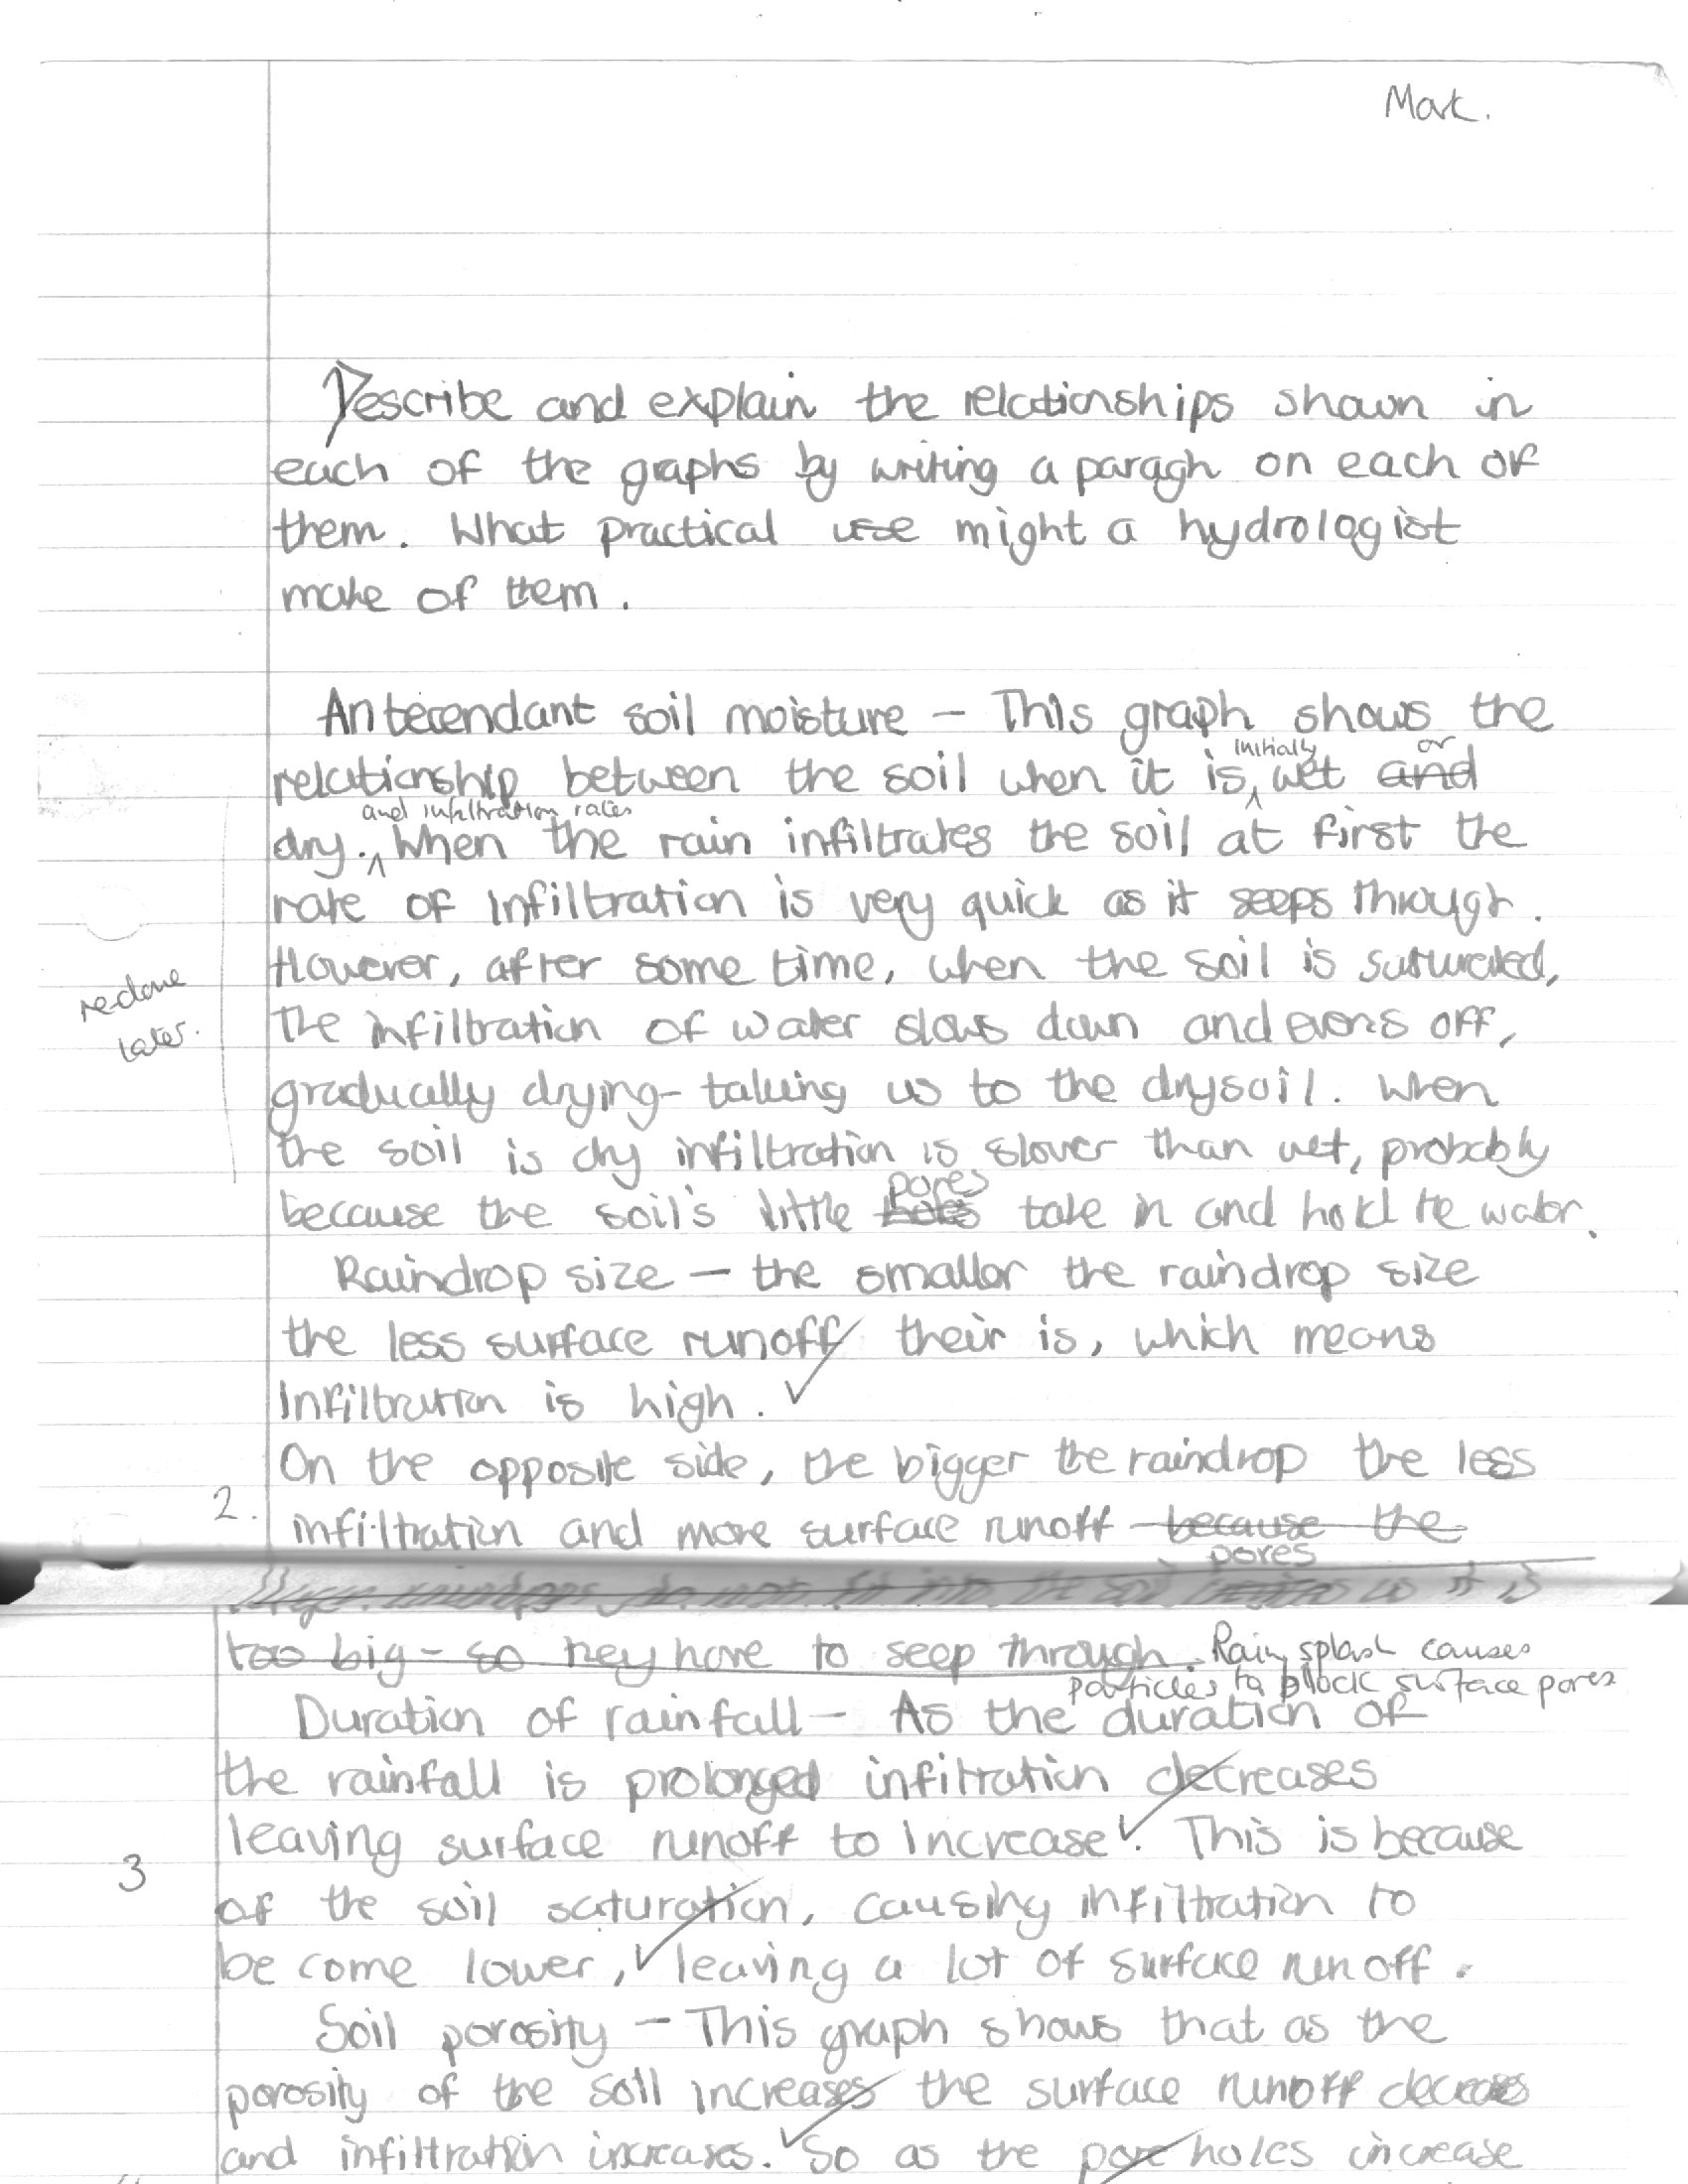 Mark.
Describe and explain the relationships shown in
each of the graphs by writing a paragh on each of
them. What practical use might a hydrologist
make of them.
Antecendant soil moisture - This graph shows the
initially or
relationship between the soil when it is wet and
and infiltration rates
dry. When the rain infiltrates the soil at first the
rate of infiltration is very quick as it seeps through.
However, after some time, when the soil is saturated,
redone
the infiltration of water slows down and evens off,
later.
gradually drying - taking us to the dry soil. When
the soil is dry infiltration is slower than wet, probably
pores
because the soil's little holes take in and hold the water.
Raindrop size - the smaller the raindrop size
the less surface runoff their is, which means
infiltration is high.
On the opposite side, the bigger the raindrop the less
2.
infiltration and more surface runoff because the
pores
too big - so they have to seep through. Rain splash causes
particles to block surface pores
Duration of rainfall - As the duration of
the rainfall is prolonged infiltration decreases
leaving surface runoff to increase. This is because
3
of the soil saturation, causing infiltration to
become lower, leaving a lot of surface runoff.
Soil porosity - This graph shows that as the
porosity of the soil increases the surface runoff decreases
and infiltration increases. So as the pore holes increase